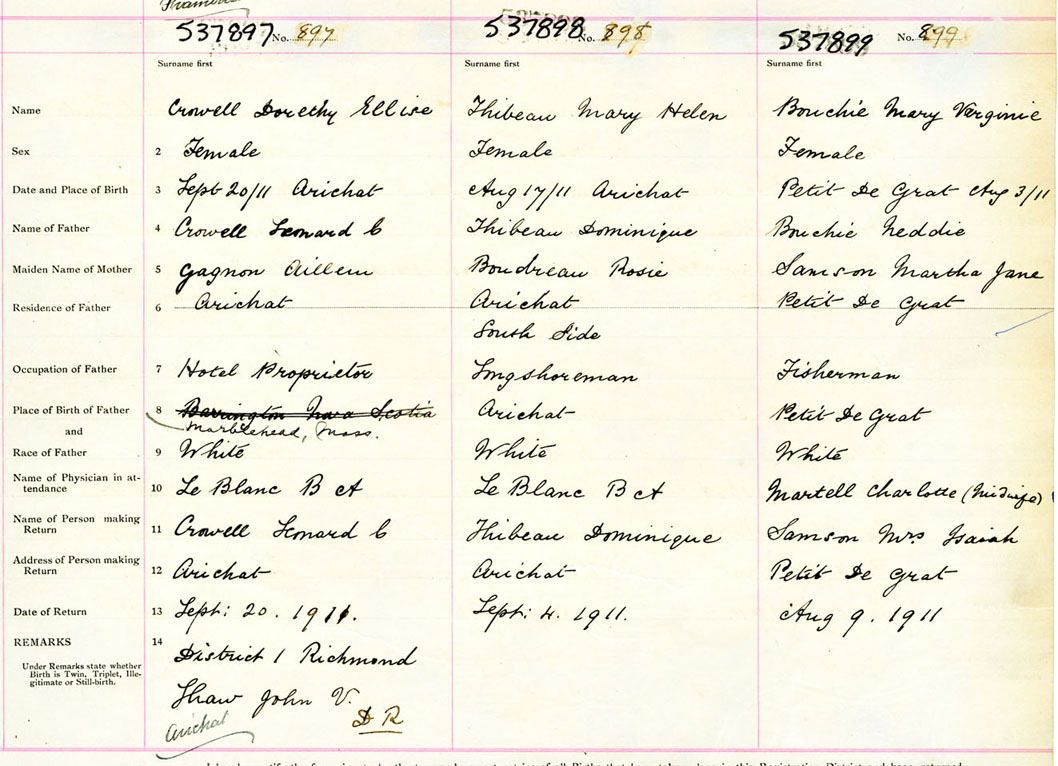 537897 No. 897 537898 No. 898 537899 No. 899
Surname first Surname first Surname first
Name Crowell Dorethy Ellise Thibeau Mary Helen Bouchie Mary Verginie
Sex 2 Female Female Female
Date and Place of Birth 3 Sept 20/11 Arichat Aug 17/11 Arichat Petit De Grat Aug 3/11
Name of Father 4 Crowell Leonard C Thibeau Dominique Bouchie Neddie
Maiden Name of Mother 5 Gagnon Aillem Boudreau Rosie Samson Martha Jane
Residence of Father 6 Arichat Arichat Petit De Grat
South Side
Occupation of Father 7 Hotel Proprietor Longshoreman Fisherman
Place of Birth of Father 8 Barrington Nova Scotia Arichat Petit De Grat
and Marblehead, Mass.
Race of Father 9 White White White
Name of Physician in at-
tendance 10 Le Blanc B A Le Blanc B A Martell Charlotte (Midwife)
Name of Person making
Return 11 Crowell Leonard C Thibeau Dominique Samson Mrs Isaiah
Address of Person making
Return 12 Arichat Arichat Petit De Grat
Date of Return 13 Sept: 20. 1911. Sept: 4. 1911. Aug 9. 1911
REMARKS 14 District 1 Richmond
Under Remarks state whether
Birth is Twin, Triplet, Ille-
gitimate or Still-birth.
Shaw John V.
Arichat D R